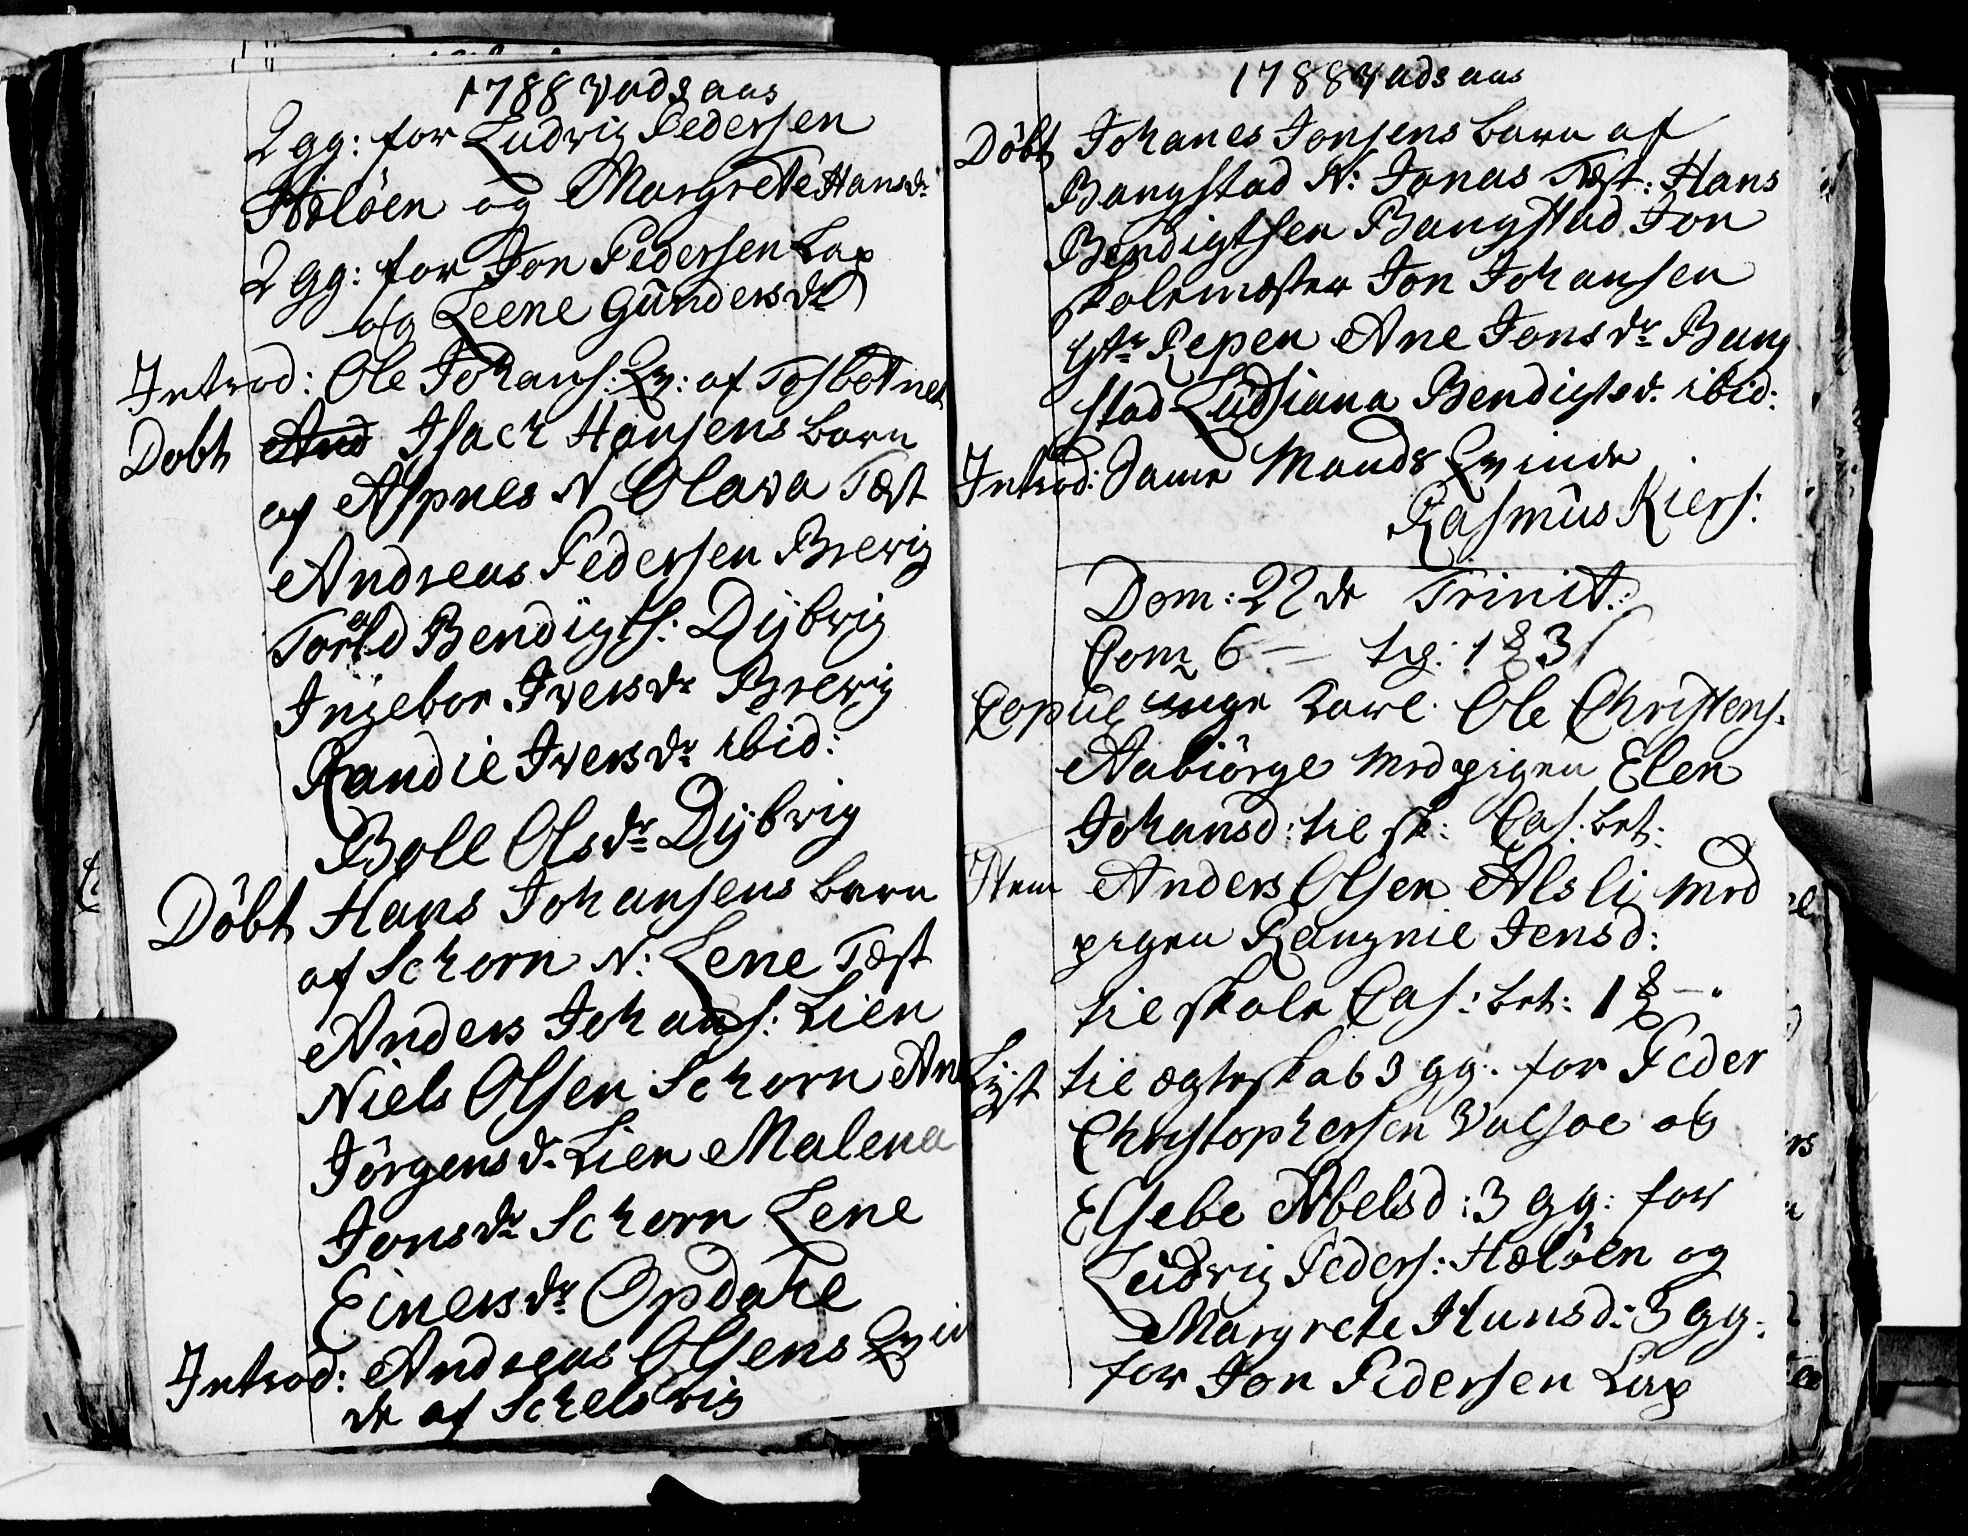 1788 Vadsaas
2 gg: for Ludvig Pedersen
Höloen og Margrete Hansdr
2 gg: for Jon Pedersen Lap
og Leene Gunders dr
Introd: Ole Johans: Qv: af Tosbotnet
Dobt And Isach Hansens barn
af Aspnes N Olava Test
Andreas Pedersen Brevig
Torald Bendigts: Dÿbvig
Ingebor Ivers dr Brevig
Randie Ivers dr ibid:
Boll Ols dr Dÿbvig
Döbt Hans Johansens barn
af Schorn N: Lene Test
Anders Johans: Lien
Niels Olsen Schorn An
Jörgens d. Lien Malena
Jons dr Schorn Lene
Einers dr Opdahl
Introd: Andreas Olsens Qvin
de af Schelsvig
1788 Vadsaas
Döbt Johanes Jonsens barn af
Bangstad N: Jonas Test: Hans
Bendigtsen Bangstad Jon
skolemester Jon Johansen
Repen Ane Jons dr Bang
stad Ludsiana Bendigts d. ibid:
Introd: Same Mands Qvinde
Rasmus Kiers:
Dom: 22 de Trinit:
Com 6 - tg: 1 3
Copul unge karl Ole Christens.
Aabiörge med pigen Elen
Johansd: til sk: Cas: bet:
Item Anders Olsen Alsli med
pigen Rangnil Jensd:
til skole Cas: bet: 1
Lÿst til ægteskab 3 gg: for Peder
Christophersen Valsoe og
Elsebe Abelsd: 3 gg: for
Ludvig Peders: Höloen og
Margrete Hansd: 3 gg:
for Jon Pedersen Lap